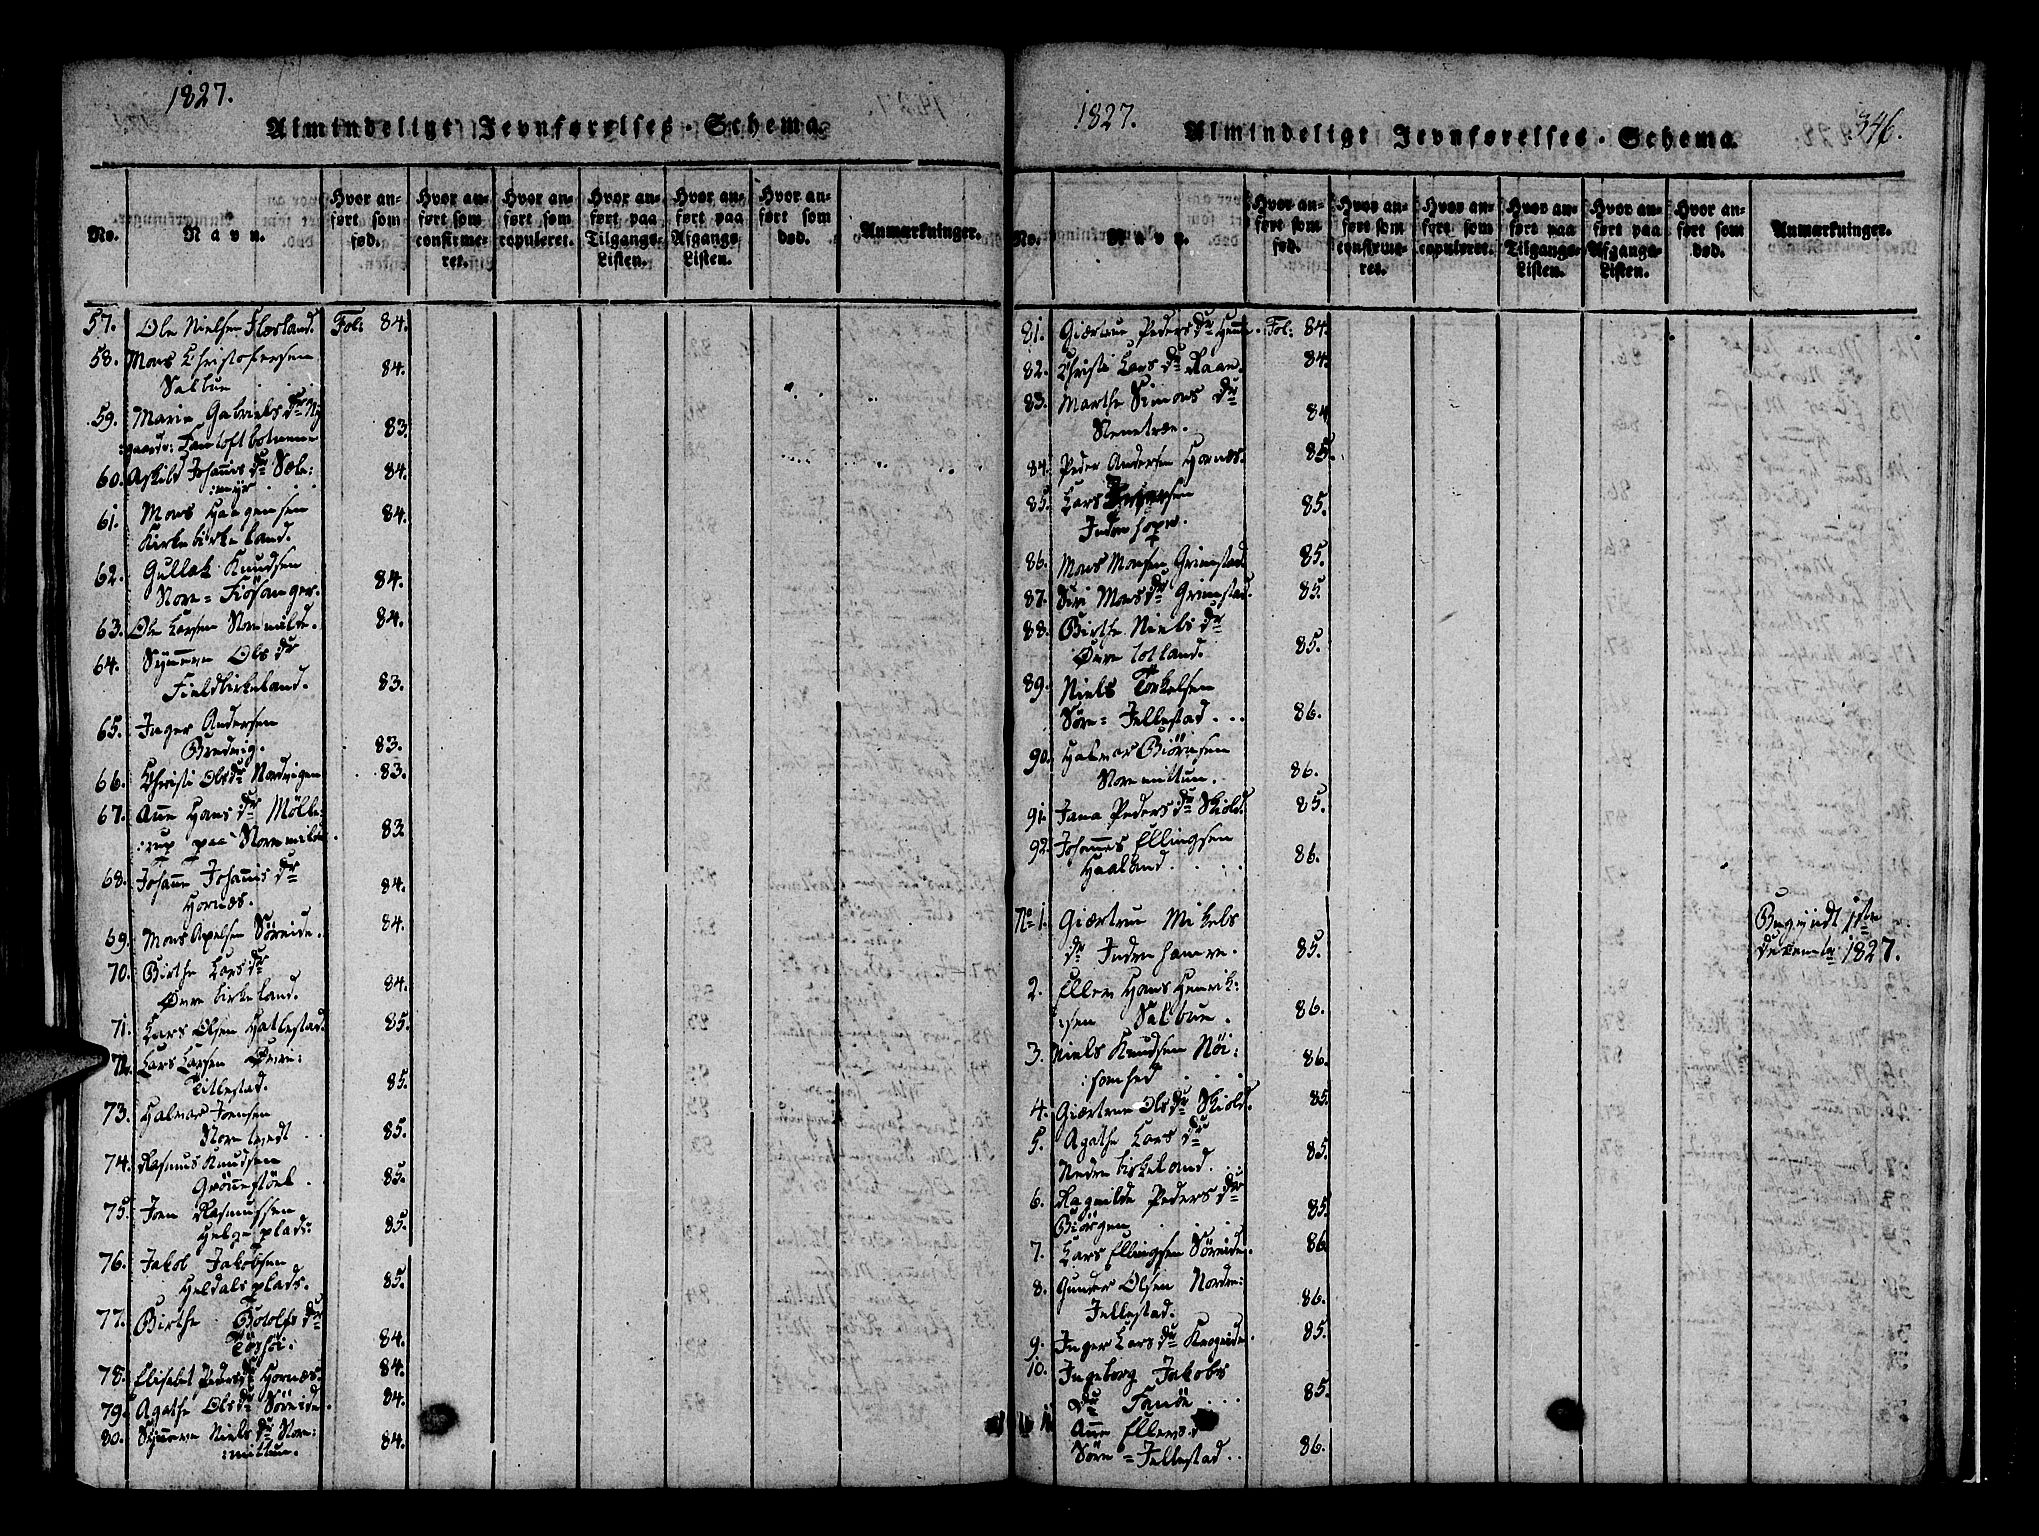 1827.
Almindeligt Jevnførelses-Schema
No.
Navn.
Hvor anført som fød.
Hvor anført som confirmeret.
Hvor anført som copuleret.
Hvor anført paa Tilgangs-Listen.
Hvor anført paa Afgangs Listen.
Hvor anført som død.
Anmærkninger.
57. Ole Nielsen Flæsland. Fol: 84.
58. Mons Christophersen
Salbue 84.
59. Marie Gabriels dr Ny
:gaards: Fantoftbotnene 83.
60. Askild Johannes dr Sæle:
:myr 84.
61. Mons Haagensen
Kirkebirkeland. 84.
62. Gullak Knudsen
Nore=Fiösanger. 84.
63. Ole Larsen Noremilde. 84.
64. Synneve Ols dr
Fieldbirkeland. 83.
65. Inger Andersen
Bredvig. 83.
66. Christi Olsdr Nordvigen 83.
67. Anne Hans dr Mölle:
:rup paa Noremilde. 83.
68. Johanne Johannis dr
Hornæs. 84.
69. Mons Apelsen Søreide. 84.
70. Birthe Lars dr
Övre birkeland. 84.
71. Lars Olsen Hatlestad. 85.
72. Lars Larsen Övre:
Titlestad. 85.
73. Halvor Joensen
Nore tvedt 85.
74. Rasmus Knudsen
Grönnestöl. 85.
75. Joen Rasmussen
Helgeplads: 85.
76. Jakob Jakobsen
Heldalsplads. 85.
77. Birthe Botolfs dr
84.
78. Elisabet Peders dr Hornæs. 84.
79. Agathe Olsdr Søreide. 84.
80. Synneve Niels dr Nore:
:mittun. 84.
1827.
Almindeligt Jevnførelses-Schema
346.
No.
Navn.
Hvor anført som fød.
Hvor anført som confirmeret.
Hvor anført som copuleret.
Hvor anført paa Tilgangs-Listen.
Hvor anført paa Afgangs-Listen.
Hvor anført som død.
Anmærkninger.
81. Giertrue Peders dr Hope. Fol: 84.
82. Christi Lars dr Raae. 84.
83. Marthe Simons dr
Stenetræe. 84.
84. Peder Andersen Hornæs. 85.
85. Lars
Indrehope. 85.
86. Mons Monsen Grimstad. 85.
87. Siri Mons dr Grimstad. 85.
88. Birthe Niels dr
Övre totland. 85.
89. Niels Torkelsen
Søre=Jellestad... 86.
90. Halvor Biörnsen
Noremittun. 86.
91. Jana Peders dr Skiold. 85.
92. Johannes Ellingsen
Haaland. 86.
No 1. Giertrue Mikels
dr Indrehamre. 85. Begyndt 1ste
December 1827.
2. Ellev Hans Henrik:
:sen Salbue. 86.
3. Niels Knudsen Nöi:
:somhed 86.
4. Giertrue Ols dr Skiold. 85.
5. Agathe Lars dr
Nedrebirkeland. 85.
6. Ragnilde Peders dr
Biörgen 85.
7. Lars Ellingsen Søreide. 86.
8. Gunder Olsen Nordre:
Jellestad. 86.
9. Inger Lars dr Krogeide. 85.
10. Ingeborg Jakobs
dr Tanöe... 85.
Anne Ellevs.d
Søre=Jellestad.. 86.